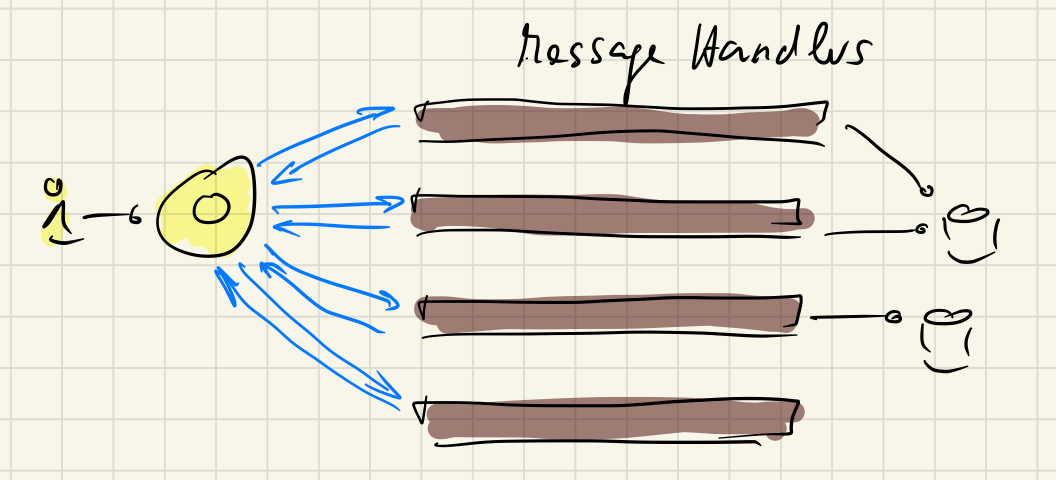 Message Handlers